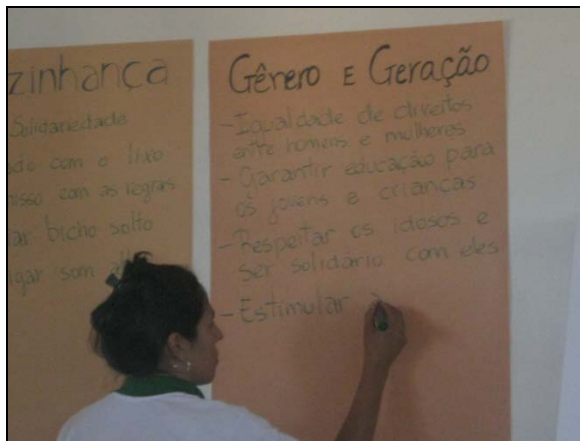 zinhança
Solidariedade
ado com o lixo
isso com as regras
ar bicho solto
ligar som al
Gênero E Geração
- Igualdade de direitos
entre homens e mulheres
- Garantir educação para
os jovens e crianças
- Respeitar os idosos e
ser solidário com eles
- Estimular